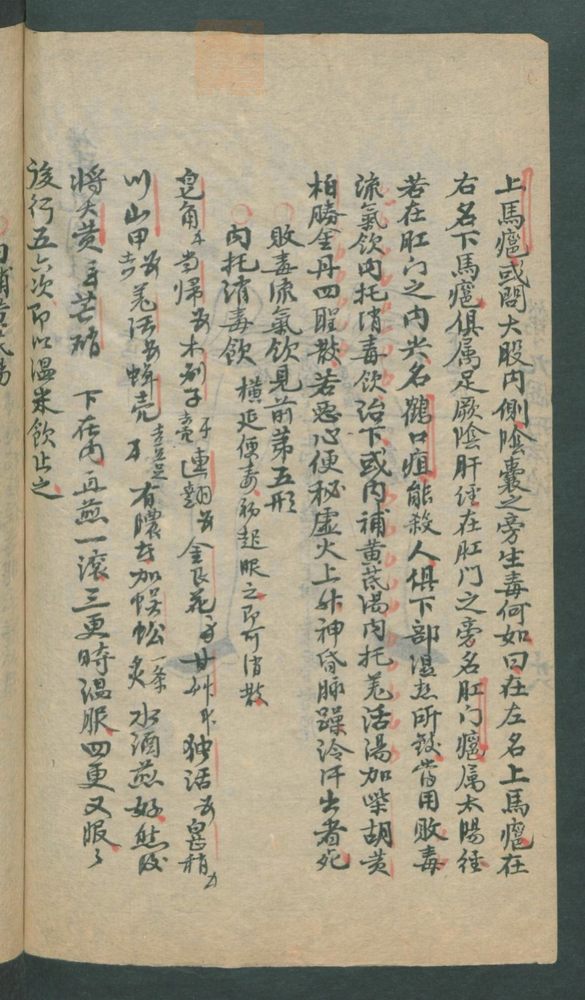 上馬癰或問大股內側陰囊之旁生毒何如曰在左名上馬癰在
右名下馬癰俱属足厥陰肝経在肛门之旁名肛门癰属太陽経
若在肛门之内又名鶴口疽能殺人俱下部湿热所致當用敗毒
流氣飲內托消毒飲治下或內補黄芪湯內托羌活湯加柴胡黄
柏勝金丹四聖散若惡心便秘虚火上升神昏脉躁冷汗出者死
敗毒流氣飲見前第五形
內托消毒飲 橫痃便毒初起服之即可消散
皂角 當歸 木别子 連翹 金艮花 甘艸 独活 皂
川山甲 羌活 蝉壳 有膿去加蜈蚣一条炙 水酒煎好然後
將大黄 芒硝 下在內再煎一滚三更時温服四更又服
後行五六次即以温米飲止之